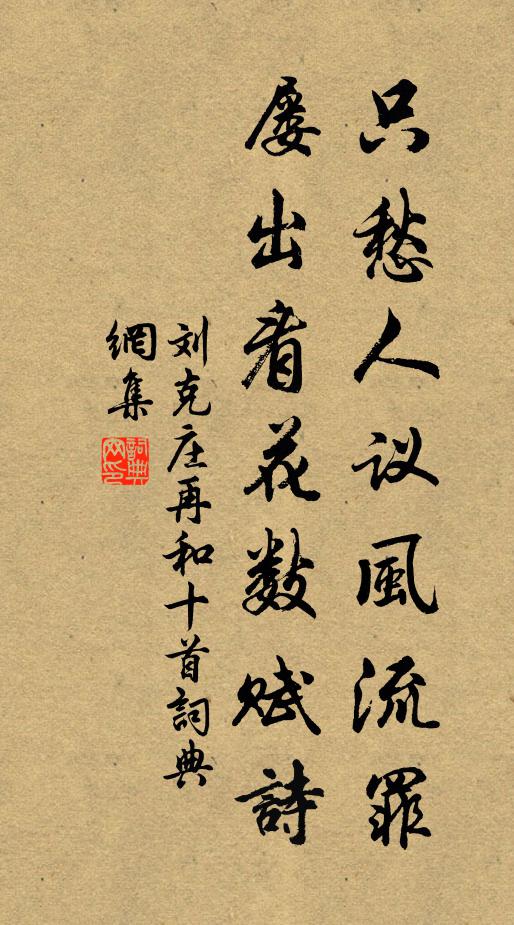 只愁人议風流罪
屡出看花数赋詩
刘克庄再和十首詞典
網集
詞典
网印